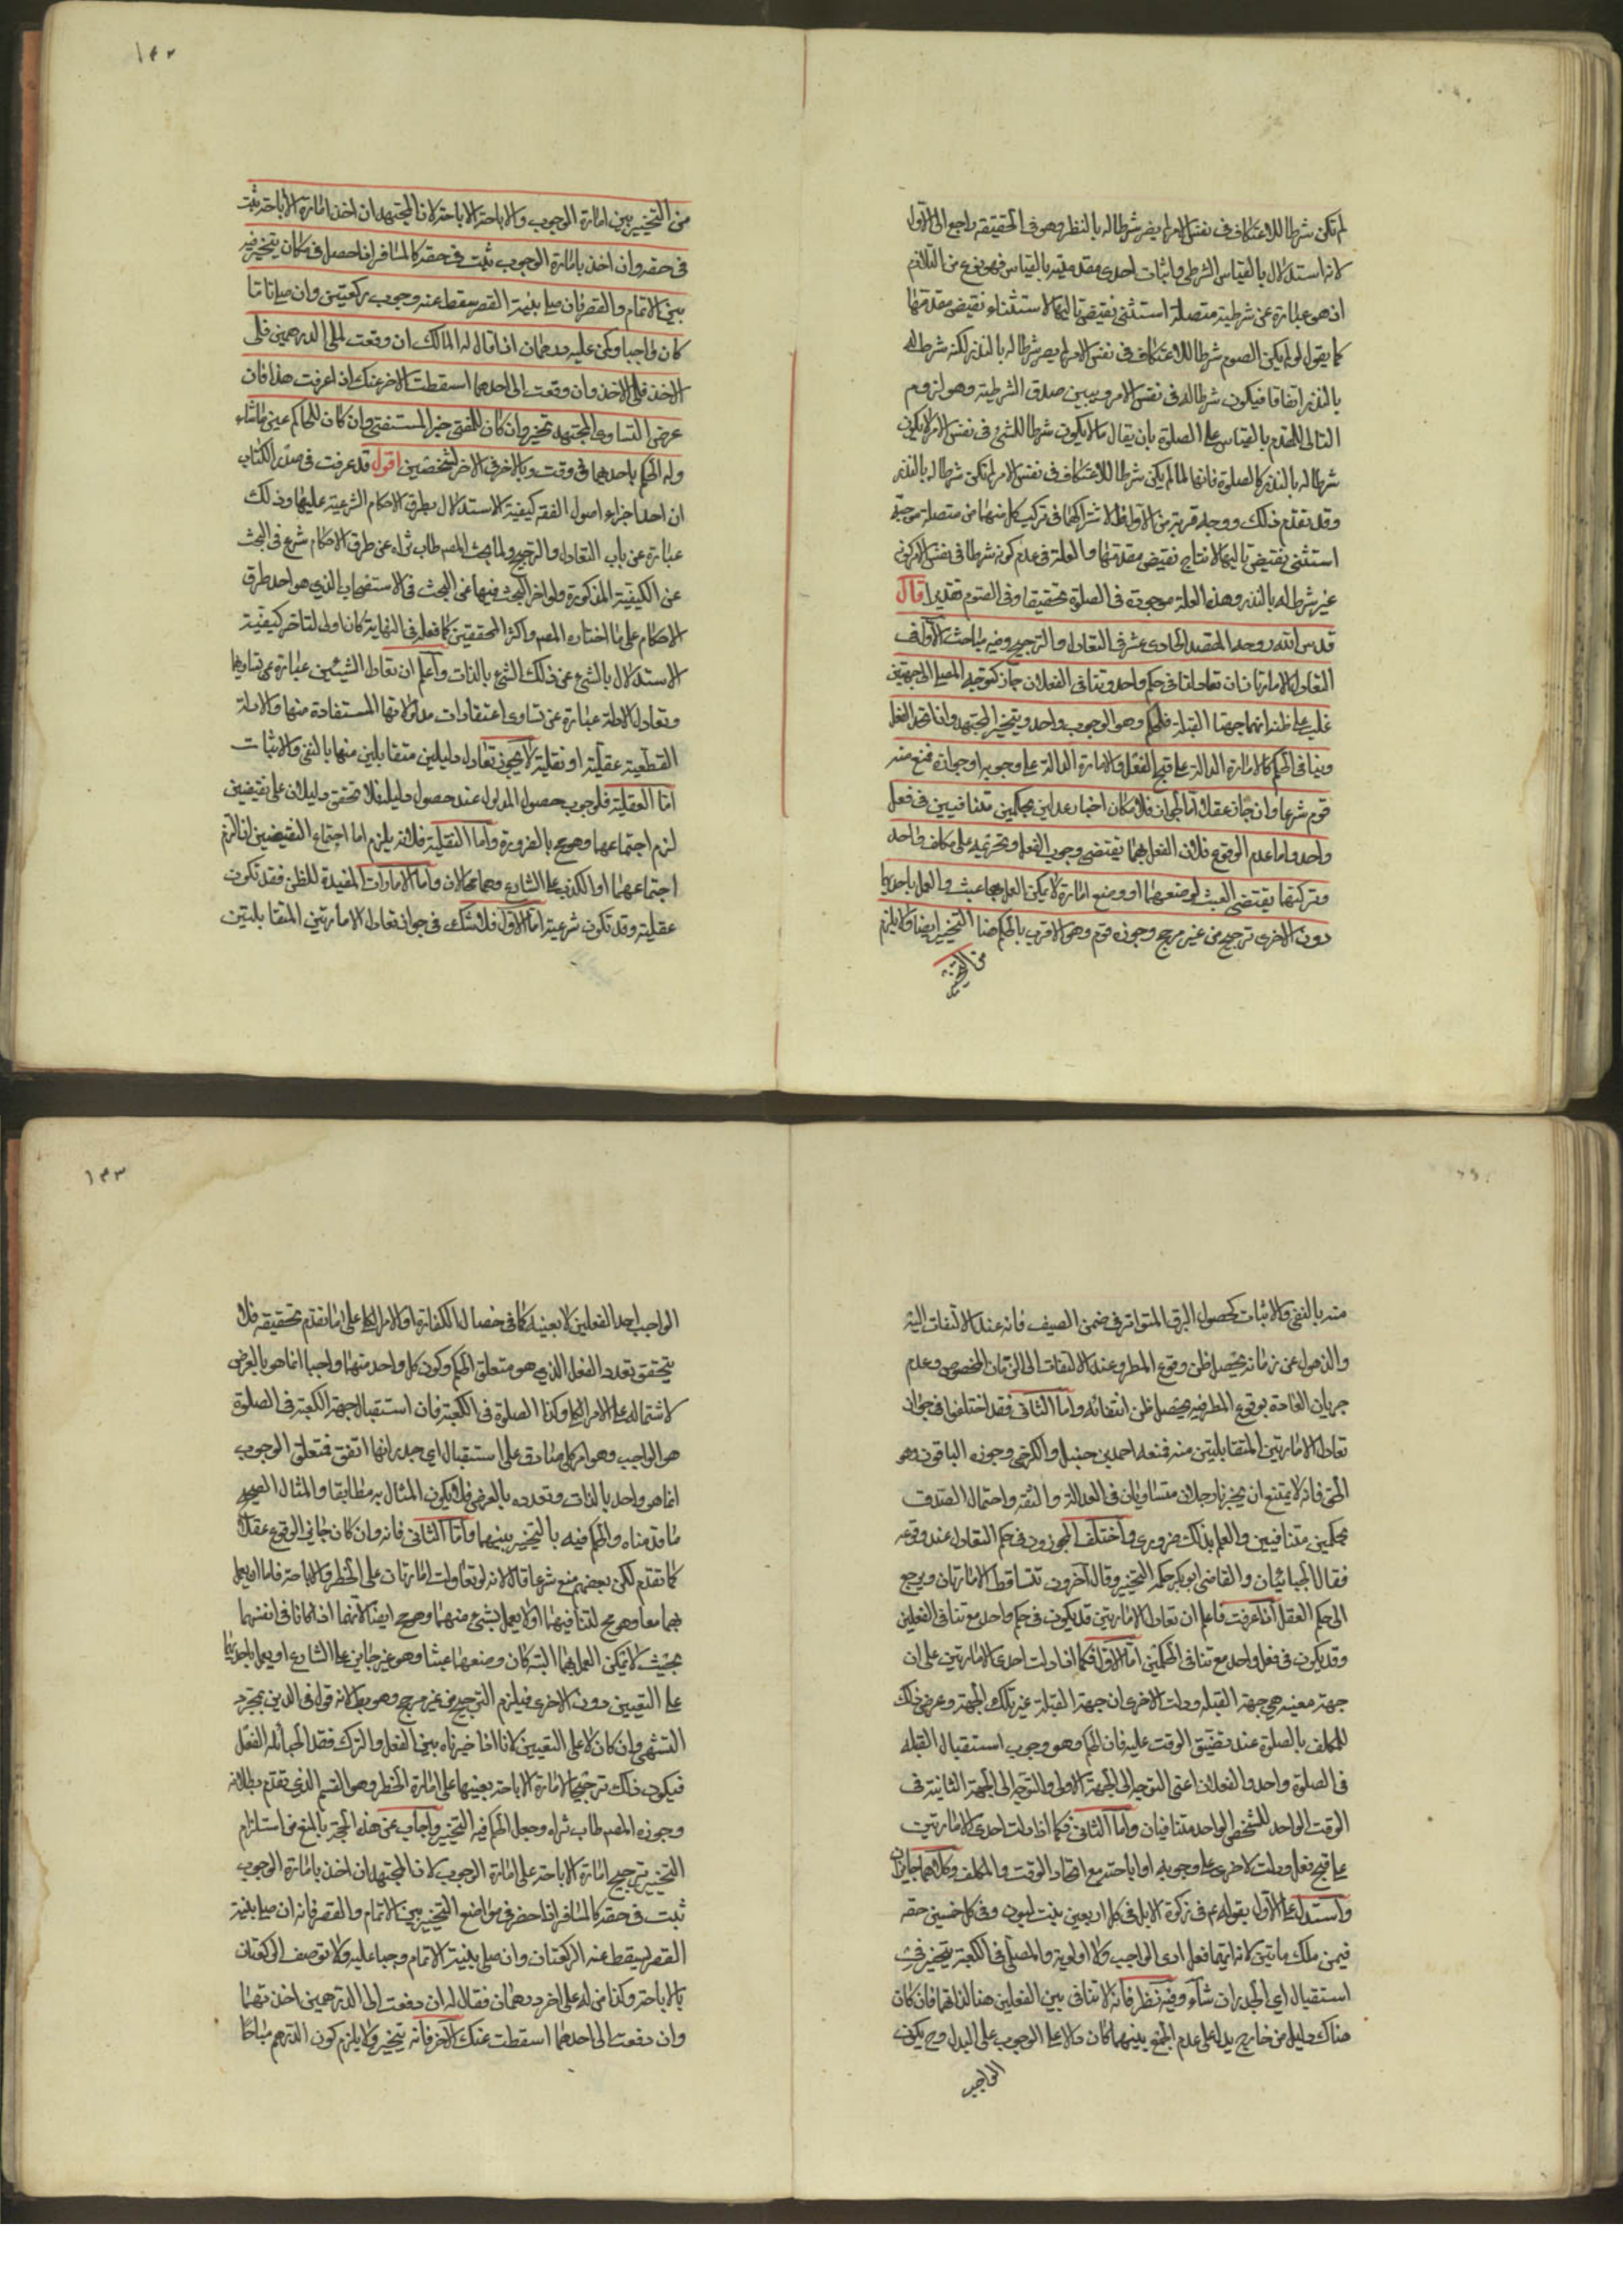 لم تكن شرطا للاعتكاف في نفس الامر لم يصر شرطا له بالنذر وهو في الحقيقة راجع الى الاول
لانه استدلال بالقياس الشرطي واثبات احدى مقدمتيه بالقياس فهو نوع من التلازم
اذ هو عبارة عن شرطية متصلة استثنى نقيض تاليها لاستثناء نقيض مقدمتها
كما يقول لو لم يكن الصوم شرطا للاعتكاف في نفس الامر لم يصر شرطا له بالنذر لكنه شرط له
بالنذر اتفاقا فيكون شرطا له في نفس الامر ويبين صدق الشرطية وهو لزوم
التالي للمقدم بالقياس على الصلوة بان يقال ما لا يكون شرطا للشئ في نفس الامر لا يكون
شرطا له بالنذر كالصلوة فانها لما لم يكن شرطا للاعتكاف في نفس الامر لم تكن شرطا له بالنذر
وقد تقدم ذلك ووجه قربة من الاول اشتراكهما في تركيب كل منهما من متصلة موجبة
استثنى نقيض تاليها لانتاج نقيض مقدمتها والعلة في عدم كونه شرطا في نفس الامر كونه
غير شرط له بالنذر وهذه العلة موجودة في الصلوة تحقيقا وفي الصوم تقديرا قال
قدس الله روحه المقصد الحادي عشر في التعادل والترجيح وفيه مباحث الاول في
التعادل الامارتان ان تعادلتا في حكم واحد وتنافي الفعلان جاز كتوجه المصلي الى جهتين
غلب على ظنه انهما جهتا القبلة فالحكم وهو الوجوب واحد ويتخير المجتهد وان اتحد الفعل
وتنافي الحكم كالامارة الدالة على قبح الفعل والامارة الدالة على وجوبه او جوازه فمنع منه
قوم شرعا وان جاز عقلا اما الجواز فلامكان اخبار عدلين بحكمين متنافيين في فعل
واحد واما عدم الوقوع فلان العمل بهما يقتضي وجوب الفعل وتحريمه على مكلف واحد
وتركهما يقتضي العبث لوضعهما او وضع امارة لا يمكن العمل بها عبث والعمل باحديهما
دون الاخرى ترجيح من غير مرجح وجوزه قوم وهو الاقرب بالحكم هنا التخيير ايضا ولا يلزم
من التخيير
١٤٢
من التخيير بين امارة الوجوب والاباحة الاباحة لان المجتهد ان اخذ امارة الاباحة ثبت
في حقه وان اخذ بامارة الوجوب ثبت في حقه كالمسافر اذا حصل في مكان يتخير فيه
بين الاتمام والقصر فان صلى بنية القصر سقط عنه وجوب ركعتين وان صلى تاما
كان واجبا وكمن عليه درهمان اذا قال له المالك ان دفعت الى الدرهمين فلى
الاخذ وان دفعت الى احدهما اسقطت الاخر عنك اذا عرفت هذا فان
عرض التساوي للمجتهد تخير وان كان للمفتي خير المستفتي وان كان للحاكم عين ما شاء
وله الحكم باحدهما في وقت وبالاخر في الاخر لشخصين اقول قد عرفت في صدر الكتاب
ان احد اجزاء اصول الفقه كيفية الاستدلال بطرق الاحكام الشرعية عليها وذلك
عبارة عن باب التعادل والترجيح ولما بحث المصم طاب ثراه عن طرق الاحكام شرع في البحث
عن الكيفية المذكورة ولو اخر البحث فيها عن البحث في الاستصحاب الذي هو احد طرق
الاحكام على ما اختاره المصم واكثر المحققين كما فعله في النهاية كان اولى لتاخر كيفية
الاستدلال بالشئ عن ذلك الشئ بالذات واعلم ان تعادل الشيئين عبارة عن تساويهما
وتعادل الادلة عبارة عن تساوي اعتقادات مدلولاتها المستفادة منها والادلة
القطعية عقلية او نقلية لا يجوز تعادل دليلين متقابلين منها بالنفي والاثبات
اما العقلية فلوجوب حصول المدلول عند حصول دليله فلو تحقق دليلان على نقيضين
لزم اجتماعهما وهو مح بالضرورة واما النقلية فلانه يلزم اما اجتماع النقيضين ان التزم
اجتماعهما او الكذب على الشارع وهما محالان واما الامارات المفيدة للظن فقد تكون
عقلية وقد تكون شرعية اما الاول فلا شك في جواز تعادل الامارتين المتقابلتين
منه بالنفي والاثبات كحصول البرق المتواتر في ضمن الصيف فانه عند الالتفات اليه
والذهول عن زمانه يحصل ظن وقوع المطر وعند الالتفات الى الزمان المخصوص وعدم
جريان العادة بوقوع المطر فيه يحصل ظن انتفائه واما الثاني فقد اختلفوا في جواز
تعادل الامارتين المتقابلتين منه فمنعه احمد بن حنبل والكرخي وجوزه الباقون وهو
الحق فانه لا يمتنع ان يخبرنا رجلان متساويان في العدالة والثقة واحتمال الصدق
بحكمين متنافيين والعلم بذلك ضروري واختلف المجوزون في حكم التعادل عند وقوعه
فقال الجبائيان والقاضي ابو بكر حكمه التخيير وقال آخرون تتساقط الامارتان ويرجع
الى حكم العقل اذا عرفت فاعلم ان تعادل الامارتين قد يكون في حكم واحد مع تنافي الفعلين
وقد يكون في فعل واحد مع تنافي الحكمين اما الاول فكما اذا دلت احدى الامارتين على ان
جهة معينة هي جهة القبلة ودلت الاخرى ان جهة القبلة غير تلك الجهة وعرض ذلك
للمكلف بالصلوة عند تضيق الوقت عليه فان الحكم وهو وجوب استقبال القبلة
في الصلوة واحد والفعلان اعني التوجه الى الجهة الاولى والتوجه الى الجهة الثانية في
الوقت الواحد للشخص الواحد متنافيان واما الثاني فكما اذا دلت احدى الامارتين
على قبح فعل ودلت الاخرى على وجوبه او اباحته مع اتحاد الوقت والمكلف وكلاهما جايزان
واستدل على الاول بقوله عم في زكوة الابل في كل اربعين بنت لبون وفي كل خمسين حقه
فيمن ملك ماتين لانه ايتهما فعل ادى الواجب ولا اولوية والمصلي في الكعبة يتخير في
استقبال اي الجدران شاء وفيه نظر فانه لا تنافي بين الفعلين هنا لذاتهما فان كان
هناك دليل من خارج يدل على عدم الجمع بينهما كان دالا على الوجوب على البدل وح يكون
الواجب
١٤٣
الواجب احد الفعلين لا بعينه كما في خصال الكفارة او الامر الكلي على ما تقدم تحقيقه فلا
يتحقق تعدد الفعل الذي هو متعلق الحكم وكون كل واحد منهما واجبا انما هو بالعرض
لاشتماله على الامر الكلي وكذا الصلوة في الكعبة فان استقبال جهة الكعبة في الصلوة
هو الواجب وهو امر كلي صادق على استقبال اي جدرانها اتفق فمتعلق الوجوب
انما هو واحد بالذات وتعدده بالعرض فلا يكون المثال به مطابقا والمثال الصحيح
ما قدمناه والحكم فيه بالتخيير بينهما واما الثاني فانه وان كان جائز الوقوع عقلا
كما تقدم لكن بعضهم منع شرعا قال لانه لو تعادلت امارتان على الحظر والاباحة فاما ان يعمل
بهما معا وهو مح لتنافيهما او لا يعمل بشئ منهما وهو مح ايضا لانهما اذا كانا في انفسهما
بحيث لا يمكن العمل بهما البتة كان وضعهما عبثا وهو غير جايز على الشارع او يعمل باحديهما
على التعيين دون الاخرى فيلزم الترجيح من غير مرجح وهو بط لانه قول في الدين بمجرد
التشهي وان كان لا على التعيين لانا اذا خيرناه بين الفعل والترك فقد ابحنا له الفعل
فيكون ذلك ترجيحا لامارة الاباحة بعينها على امارة الحظر وهو القسم الذي تقدم بطلانه
وجوزه المصم طاب ثراه وجعل الحكم فيه التخيير واجاب عن هذه الحجة بالمنع من استلزام
التخيير ترجيح امارة الاباحة على امارة الوجوب لان المجتهد ان اخذ بامارة الوجوب
ثبت في حقه كالمسافر اذا حضر في مواضع التخيير بين الاتمام والقصر فانه ان صلى بنية
القصر يسقط عنه الركعتان وان صلى بنية الاتمام وجبا عليه ولا توصف الركعتان
بالاباحة وكذا من له على اخر درهمان فقال له ان دفعت الى الدرهمين اخذتهما
وان دفعت الى احدهما اسقطت عنك الاخر فانه يتخير ولا يلزم كون الدرهم مباحا